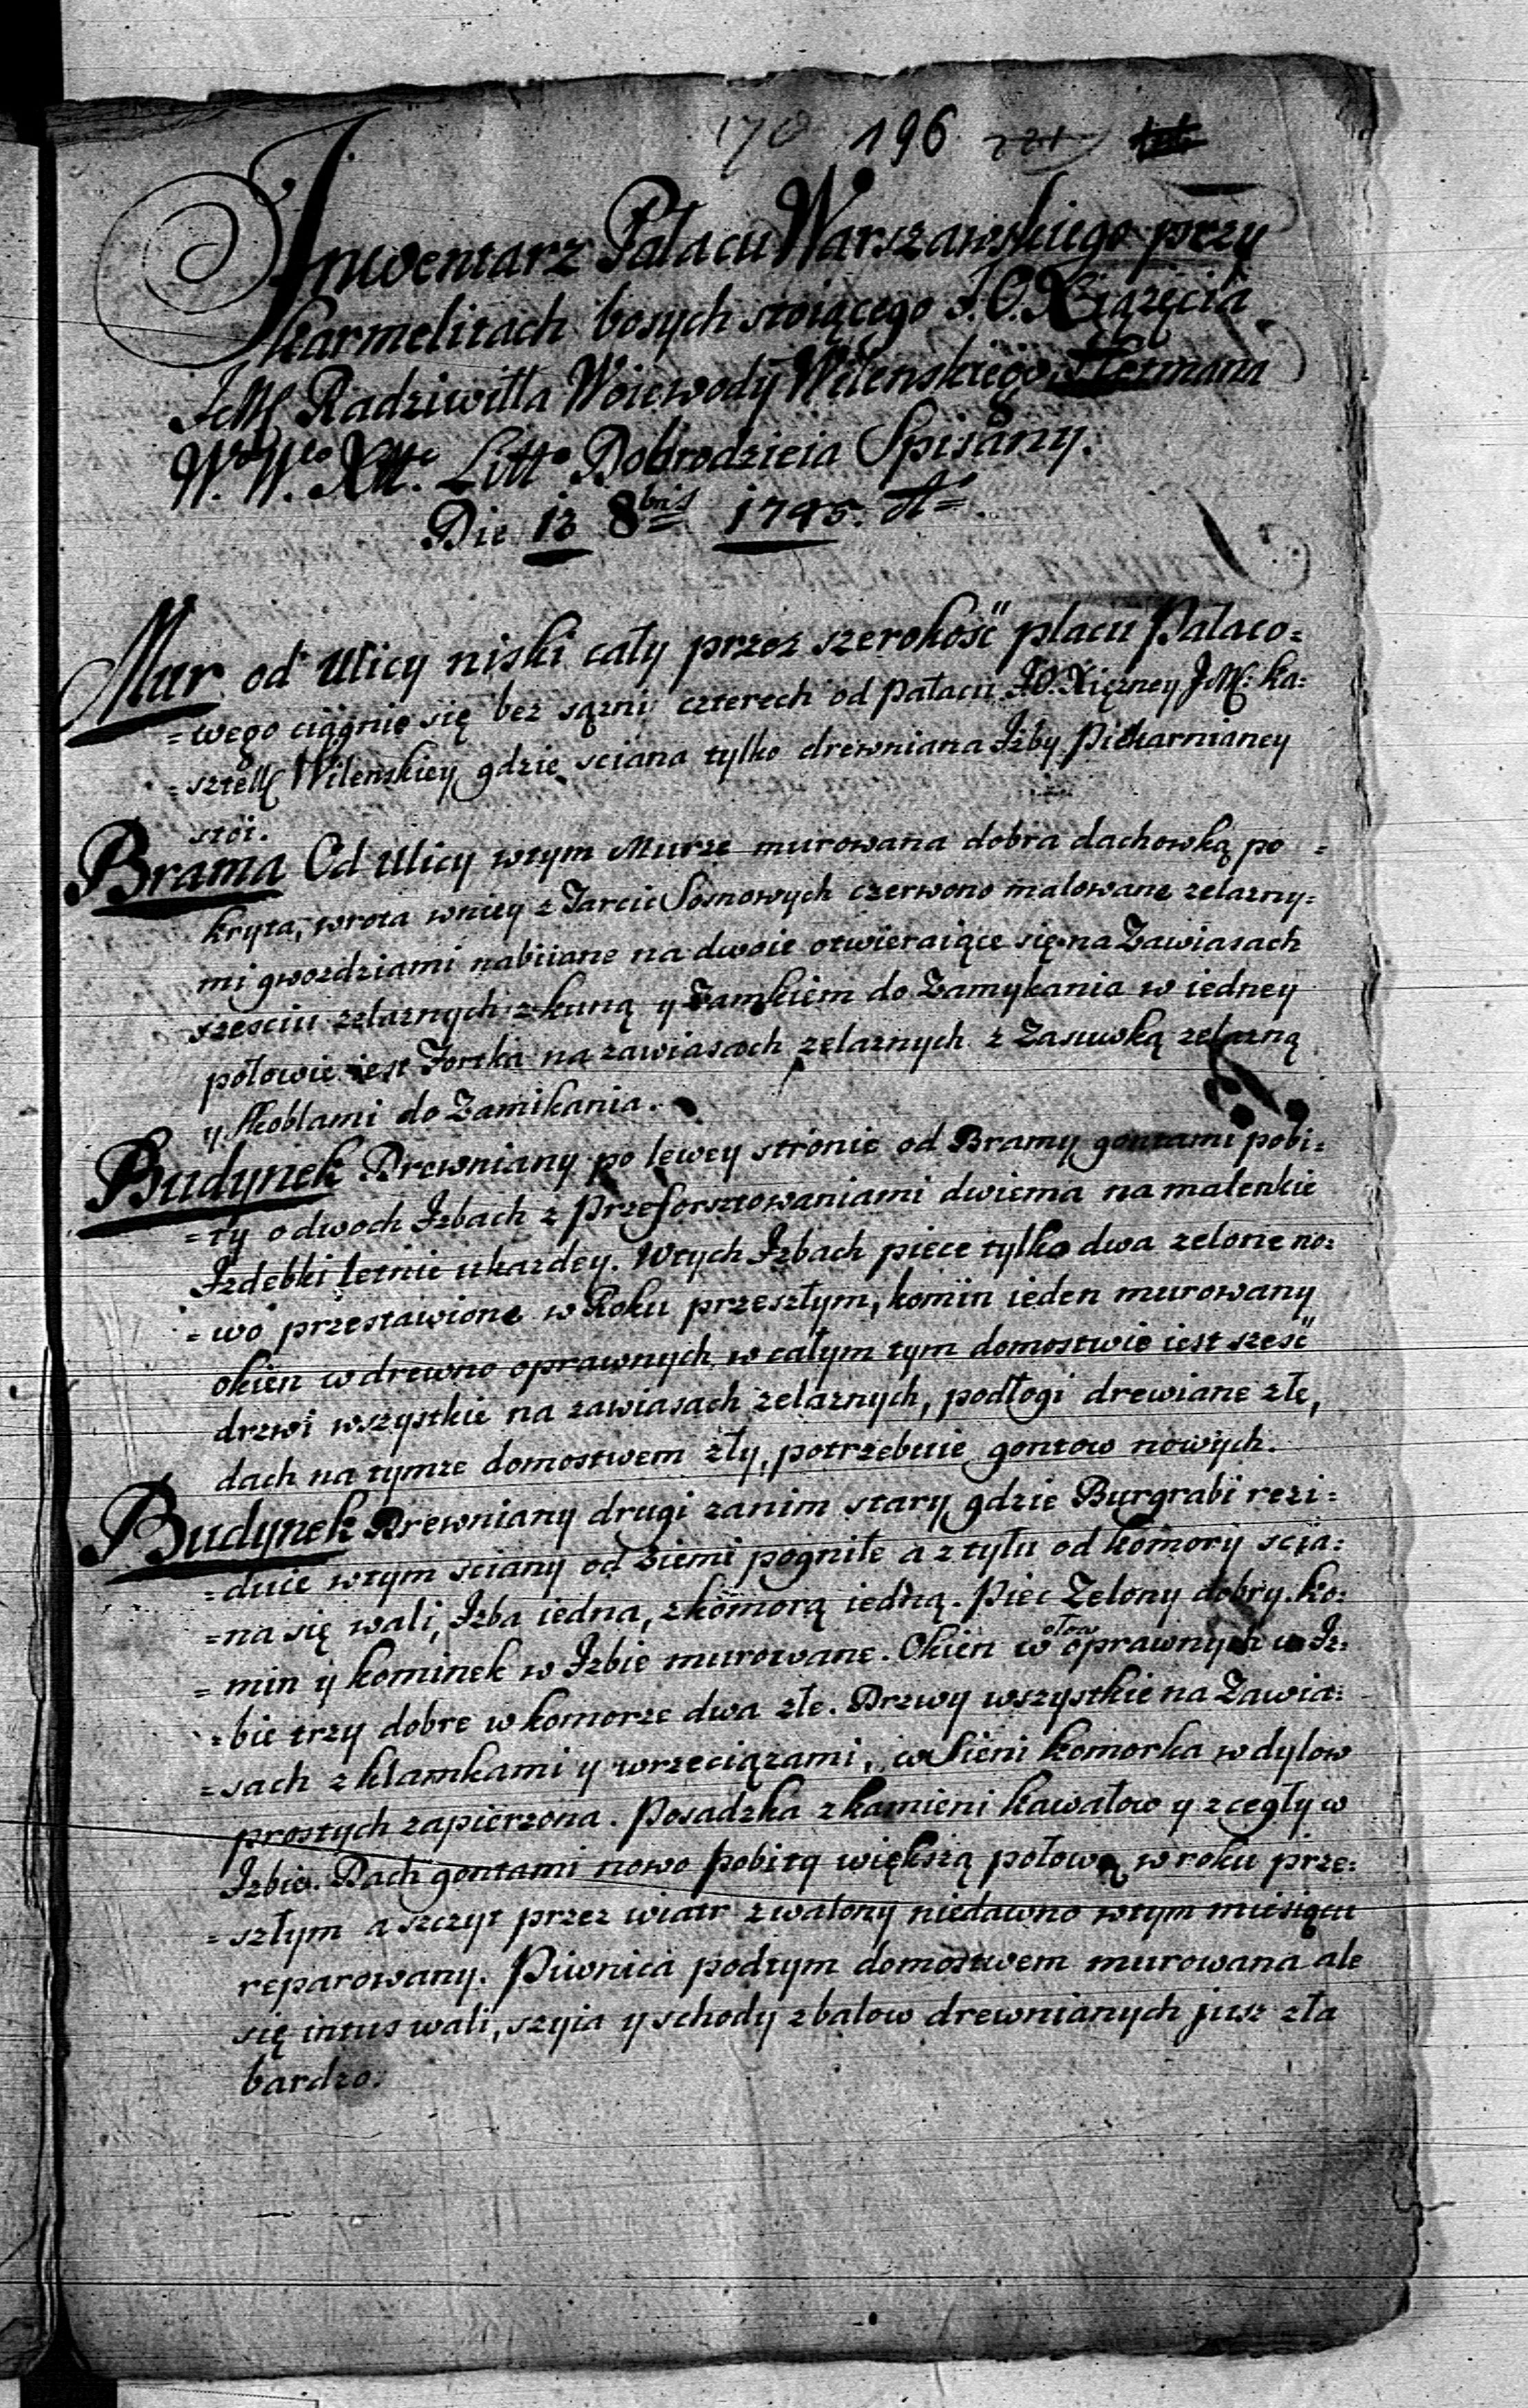 196
Inwentarz Pałacu Warszawskiego przy
Karmelitach bosych stoiącego J.O. Xiążęcia
Radziwiłła Woiewody Wilenskiego Hetmana
W. W. Litt Dobrodzieia Spisany.
Die 13 8bris 1745. A
Mur od Ulicy niski cały przez szerokość placu Pałaco=
=wego ciągnie się bez sązni czterech od Pałacu JO. Xiężney JM: ka=
=sztell Wilenskiey gdzie sciana tylko drewniana Izby Piekarnianey
stoi.
Brama Od Ulicy wtym Murze murowana dobra dachowką po =
kryta, wrota wniey z Tarcic Sosnowych czerwono malowane zelazny=
mi gwozdziami nabiiane na dwoie otwieraiące się na Zawiasach
szesciu zelaznych z kuną y Zamkiem do Zamykania w iedney
połowie iest Fortka na zawiasach zelaznych z Zasuwką zelazną
y skoblami do Zamikania.
Budynek Drewniany po lewey stronie od Bramy gontami pobi=
=ty o dwoch Izbach z Przeforsztowaniami dwiema na malenkie
Izdebki letnie ukazdey. Wtych Izbach piece tylko dwa zelone no=
=wo przestawione w Roku przeszłym, komin ieden murowany
okien w drewno oprawnych w całym tym domostwie iest szesć
drzwi wszystkie na zawiasach zelaznych, podłogi drewiane złe,
dach na tymze domostwem zły, potrzebuie gontow nowych.
Budynek Drewniany drugi zanim stary gdzie Burgrabi rezi=
=duie wtym sciany od Ziemi pogniłe a z tyłu od komory scia=
=na się wali, Izba iedna, z komorą iedną. Piec Zelony dobry. ko=
=min y kominek w Izbie murowane. Okien w ołow oprawnych w Iz=
=bie trzy dobre w komorze dwa złe. Drzwy wszystkie na Zawia=
=sach z klamkami y wrzeciązami, w Sieni komorka w dylow
prostych zapierzona. Posadzka z kamieni kawałow y z cegły w
Izbie. Dach gontami nowo pobity większą połową w roku prze=
=szłym a szczyt przez wiatr zwalony niedawno wtym miesiącu
reparowany. Piwnica podtym domostwem murowana ale
się intus wali, szyia y schody z balow drewnianych jusz zła
bardzo.